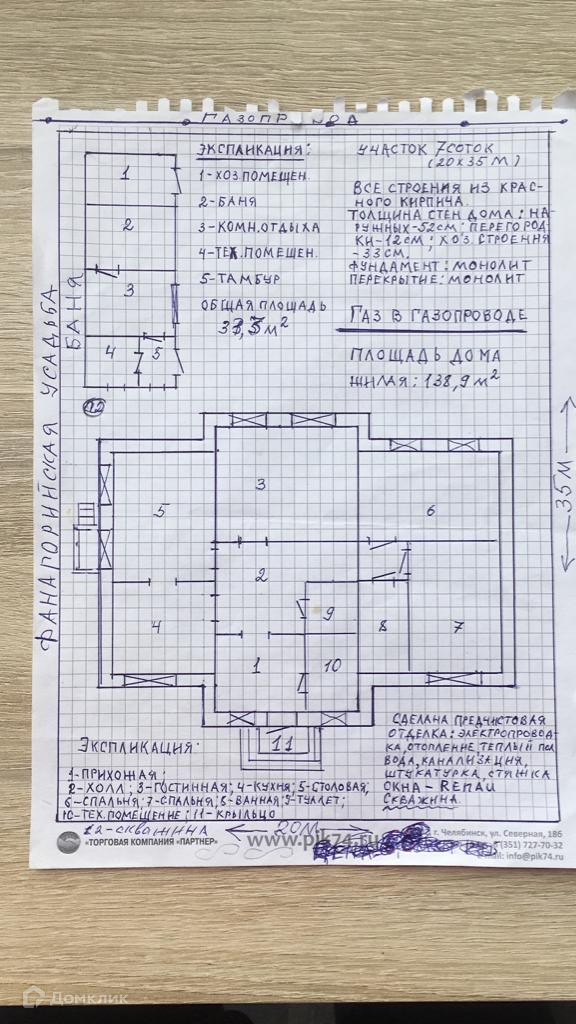 ГАЗОПР
ЭКСПЛИКАЦИЯ:
1-ХОЗ.ПОМЕЩЕН.
2-БАНЯ
3-КОМН.ОТДЫХА
4-ТЕХ.ПОМЕЩЕН.
5-ТАМБУР
ОБЩАЯ ПЛОЩАДЬ
м²
УЧАСТОК 7СОТОК
(20х35 М)
ВСЕ СТРОЕНИЯ ИЗ КРАС-
НОГО КИРПИЧА.
ТОЛЩИНА СТЕН ДОМА: НА-
РУЖНЫХ-52СМ; ПЕРЕГОРОД
КИ-12СМ; ХОЗ.СТРОЕНИЯ
-33СМ.
ФУНДАМЕНТ: МОНОЛИТ
ПЕРЕКРЫТИЕ: МОНОЛИТ
ГАЗ В ГАЗОПРОВОДЕ
ПЛОЩАДЬ ДОМА
ЖИЛАЯ: 138,9 м²
1
2
3
4 5
БАНЯ
ФАНАГОРИЙСКАЯ УСАДЬБА
12
35М
5
3
6
2
4
9
8
7
1
10
11
ЭКСПЛИКАЦИЯ:
1-ПРИХОЖАЯ;
2-ХОЛЛ; 3-ГОСТИННАЯ; 4-КУХНЯ; 5-СТОЛОВАЯ;
6-СПАЛЬНЯ; 7-СПАЛЬНЯ; 8-ВАННАЯ; 9-ТУАЛЕТ;
10-ТЕХ.ПОМЕЩЕНИЕ; 11-КРЫЛЬЦО
12-СКВАЖИНА
20М
СДЕЛАНА ПРЕДЧИСТОВАЯ
ОТДЕЛКА: ЭЛЕКТРОПРОВОД-
КА, ОТОПЛЕНИЕ, ТЕПЛЫЙ ПОЛ
ВОДА, КАНАЛИЗАЦИЯ,
ШТУКАТУРКА, СТЯЖКА
ОКНА - REHAU
СКВАЖИНА.
«ТОРГОВАЯ КОМПАНИЯ «ПАРТНЕР»
www.pik74.ru
г. Челябинск, ул. Северная, 18б
(351) 727-70-32
mail: info@pik74.ru
Домклик